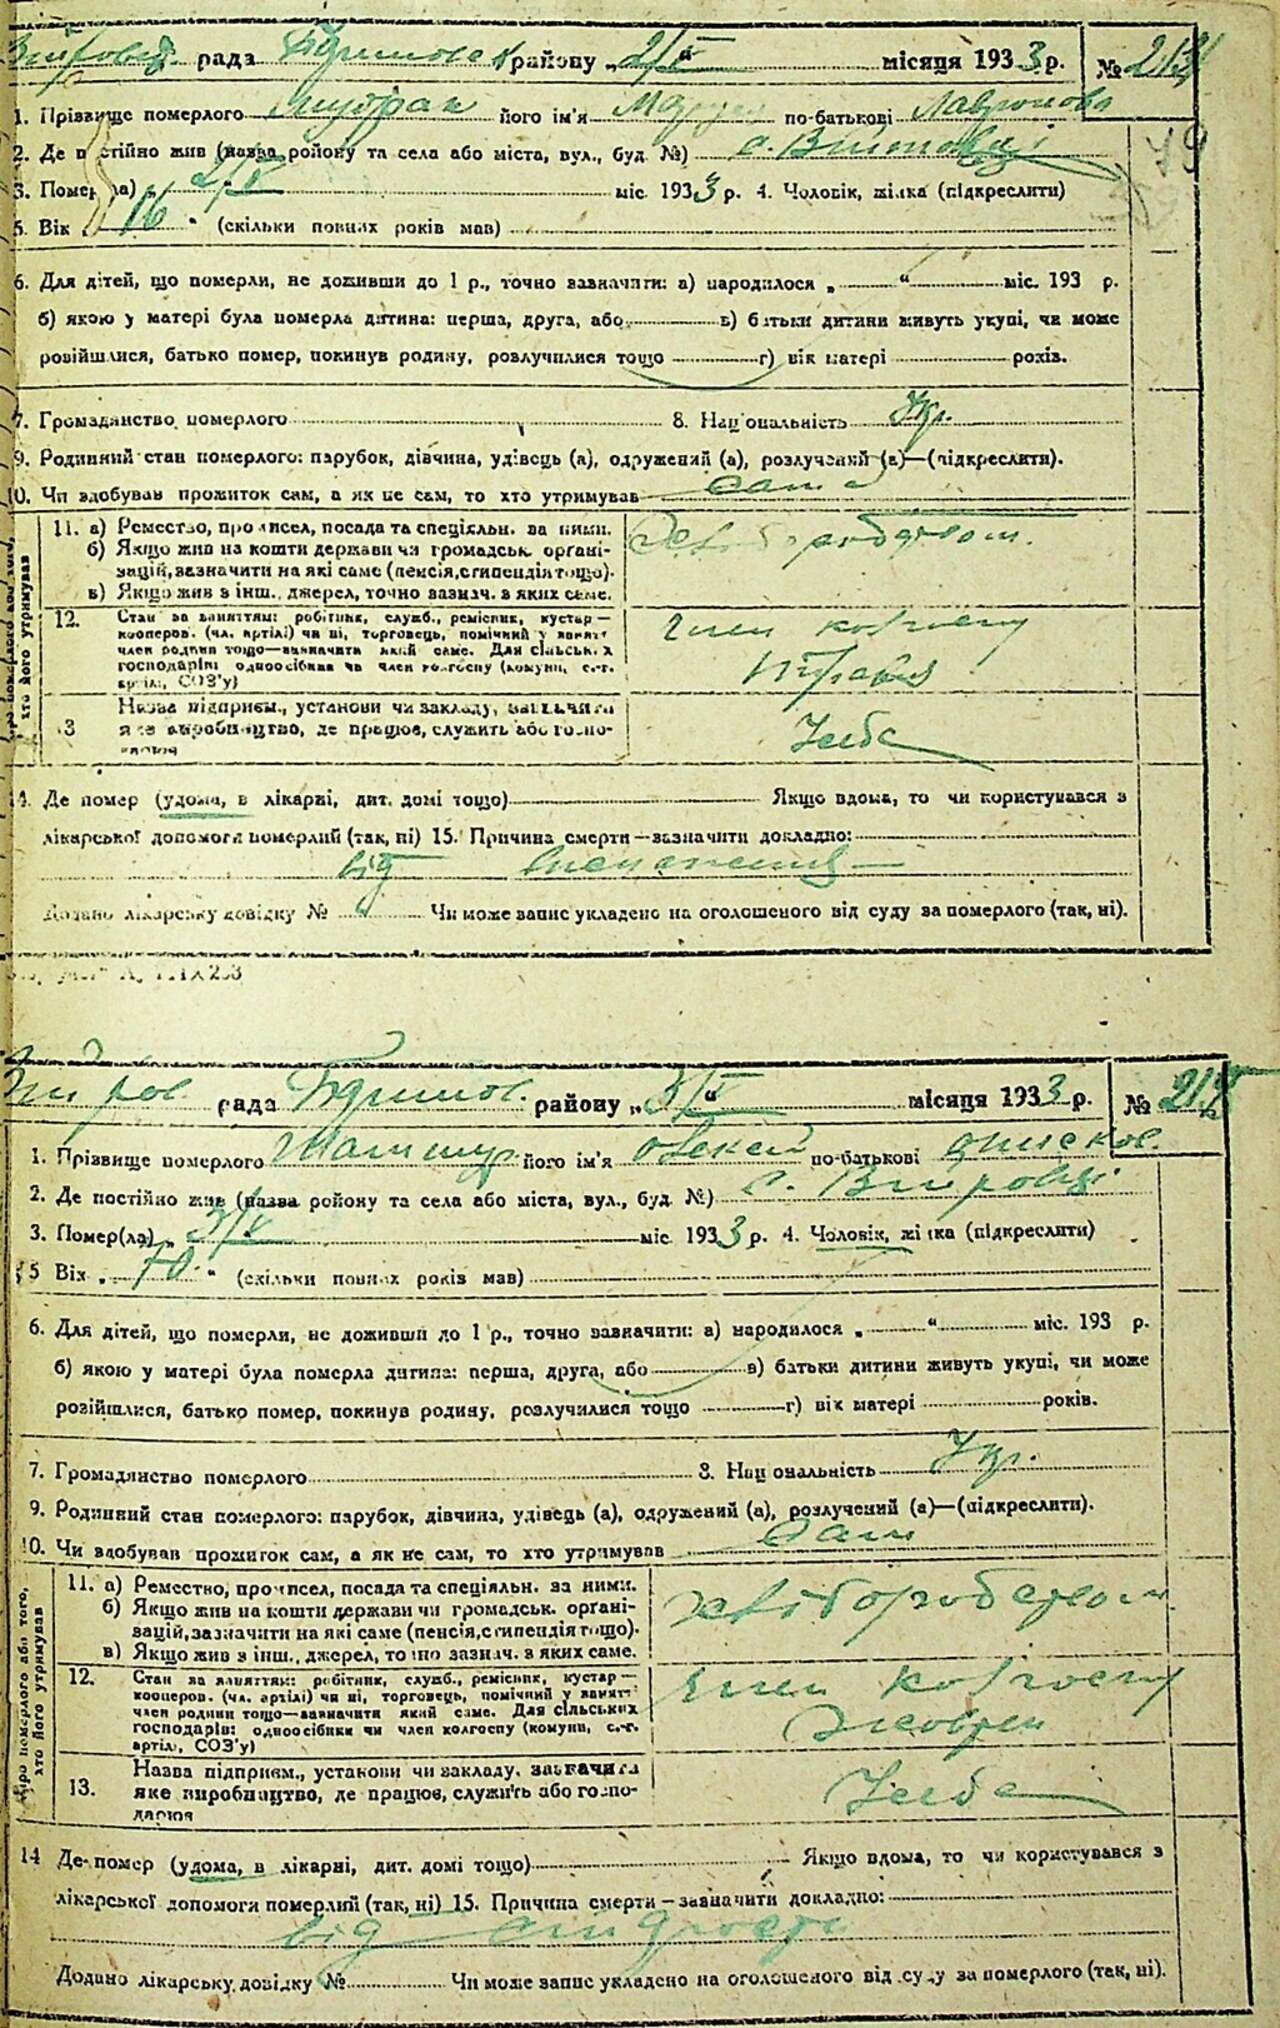 рада районо „2/V“ місяця 1933 р. №
1. Прізвище померлого його ім'я по-батькові
2. Де постійно жив (назва району та села або міста, вул., буд. №) с.
3. Помер(ла) 2/V міс. 1933 р. 4. Чоловік, жінка (підкреслити)
5. Вік „16“ (скільки повних років мав)
6. Для дітей, що померли, не доживши до 1 р., точно зазначити: а) народилося „ “ міс. 193 р.
б) якою у матері була померла дитина: перша, друга, або в) батьки дитини живуть укупі, чи може
розійшлися, батько помер, покинув родину, розлучилися тощо г) вік матері років.
7. Громадянство померлого 8. Національність Укр.
9. Родинний стан померлого: парубок, дівчина, удівець (а), одружений (а), розлучений (а)—(підкреслити).
10. Чи здобував прожиток сам, а як не сам, то хто утримував сама
11. а) Ремество, промисел, посада та спеціяльн. за ними.
б) Якщо жив на кошти держави чи громадськ. органі-
зацій, зазначити на які саме (пенсія, стипендія тощо).
в) Якщо жив з інш. джерел, точно зазнач. з яких саме.
хліборобством.
12. Стан за заняттям: робітник, служб., ремісник, кустар—
кооперов. (чл. артілі) чи ні, торговець, помічний у занятт
член родини тощо—зазначити який саме. Для сільських
господарів: одноосібник чи член колгоспу (комуни, с.-г.
артілі, СОЗ'у)
член колгоспу
13 Назва підприєм., установи чи закладу, зазначити
яке виробництво, де працює, служить або госпо-
дарює
14. Де помер (удома, в лікарні, дит. домі тощо) Якщо вдома, то чи користувався з
лікарської допомоги померлий (так, ні) 15. Причина смерти—зазначити докладно:
від виснаження
Додано лікарську довідку № Чи може запис укладено на оголошеного від суду за померлого (так, ні).
рада району „3/V“ місяця 1933 р. №
1. Прізвище померлого його ім'я Олексей по-батькові
2. Де постійно жив (назва району та села або міста, вул., буд. №) с.
3. Помер(ла) „3/V міс. 1933 р. 4. Чоловік, жінка (підкреслити)
5 Вік „70“ (скільки повних років мав)
6. Для дітей, що померли, не доживши до 1 р., точно зазначити: а) народилося „ “ міс. 193 р.
б) якою у матері була померла дитина: перша, друга, або в) батьки дитини живуть укупі, чи може
розійшлися, батько помер, покинув родину, розлучилися тощо г) вік матері років.
7. Громадянство померлого 8. Національність Укр.
9. Родинний стан померлого: парубок, дівчина, удівець (а), одружений (а), розлучений (а)—(підкреслити).
10. Чи здобував прожиток сам, а як не сам, то хто утримував сам
Про померлого або того,
хто його утримував
11. а) Ремество, промисел, посада та спеціяльн. за ними.
б) Якщо жив на кошти держави чи громадськ. органі-
зацій, зазначити на які саме (пенсія, стипендія тощо).
в) Якщо жив з інш. джерел, точно зазнач. з яких саме.
хліборобством
12. Стан за заняттям: робітник, служб., ремісник, кустар—
кооперов. (чл. артілі) чи ні, торговець, помічний у занятт
член родини тощо—зазначити який саме. Для сільських
господарів: одноосібник чи член колгоспу (комуни, с.-г.
артілі, СОЗ'у)
член колгоспу
13. Назва підприєм., установи чи закладу, зазначити
яке виробництво, де працює, служить або госпо-
дарює
14 Де помер (удома, в лікарні, дит. домі тощо) Якщо вдома, то чи користувався з
лікарської допомоги померлий (так, ні) 15. Причина смерти—зазначити докладно:
від
Додано лікарську довідку № Чи може запис укладено на оголошеного від суду за померлого (так, ні).